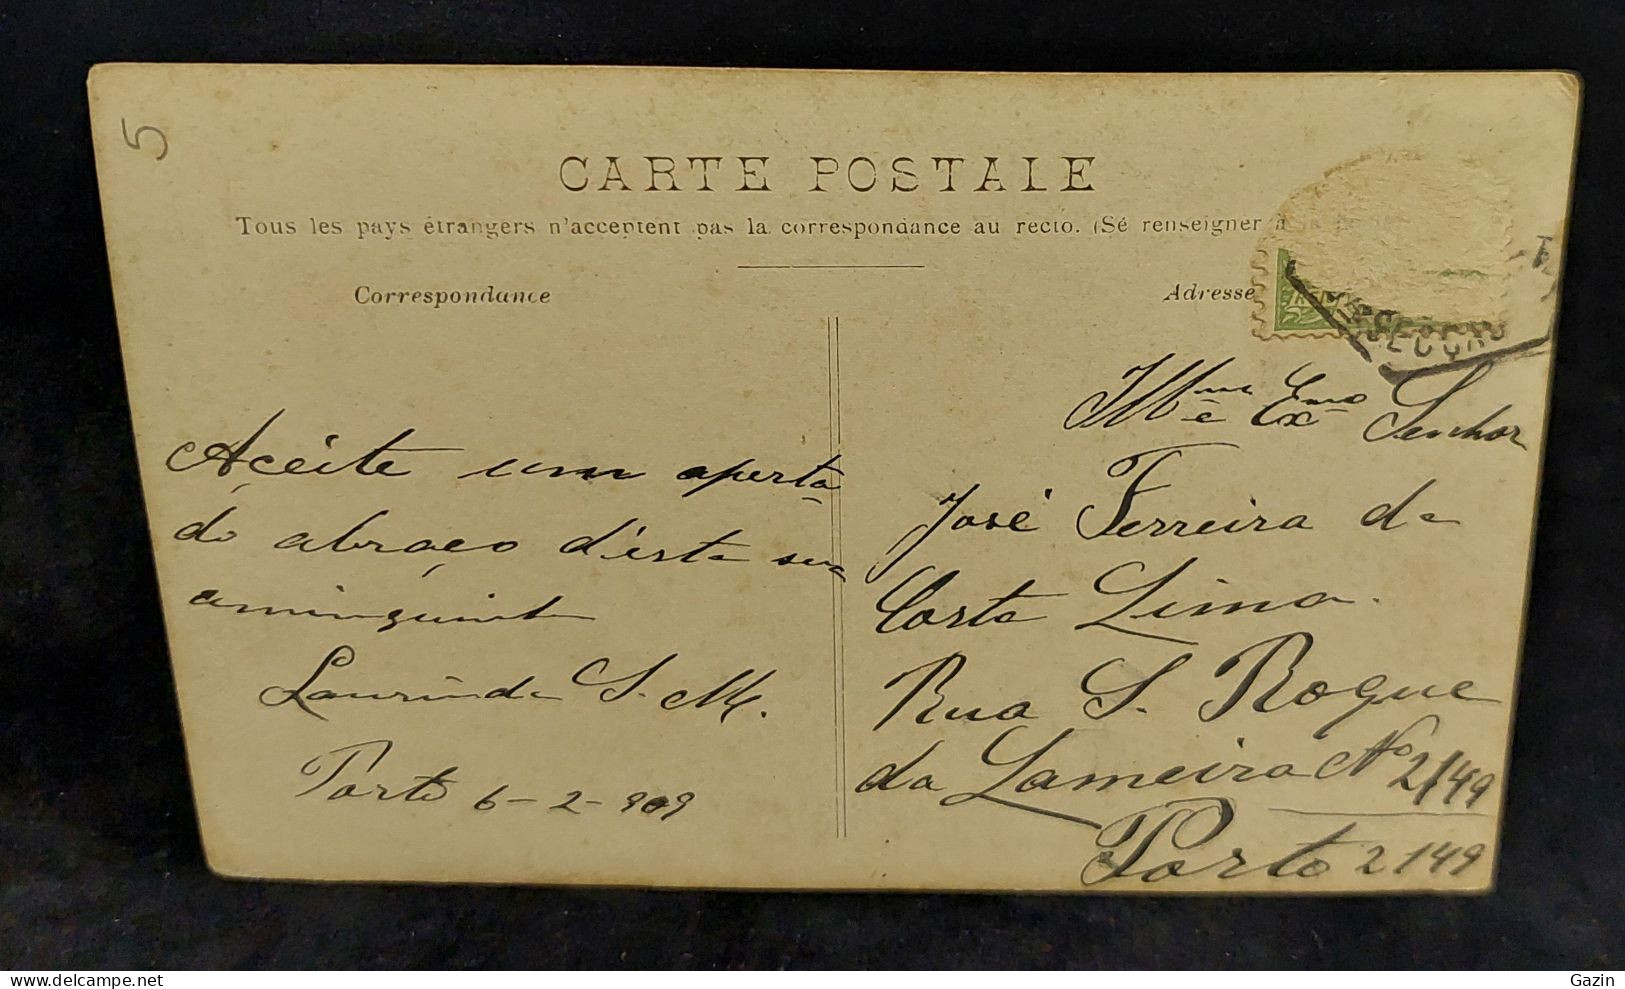 5
CARTE POSTALE
Tous les pays étrangers n'acceptent pas la correspondance au recto. (Sé renseigner à la
Correspondance
Adresse
Aceite um aperta-
do abraço d'este seu
amiguinho
Laurinda S. M.
Porto 6-2-909
Illmº e Exmo Senhor
José Ferreira da
Costa Lima.
Rua S. Roque
da Lameira Nº 2149
Porto 2149
Gazin